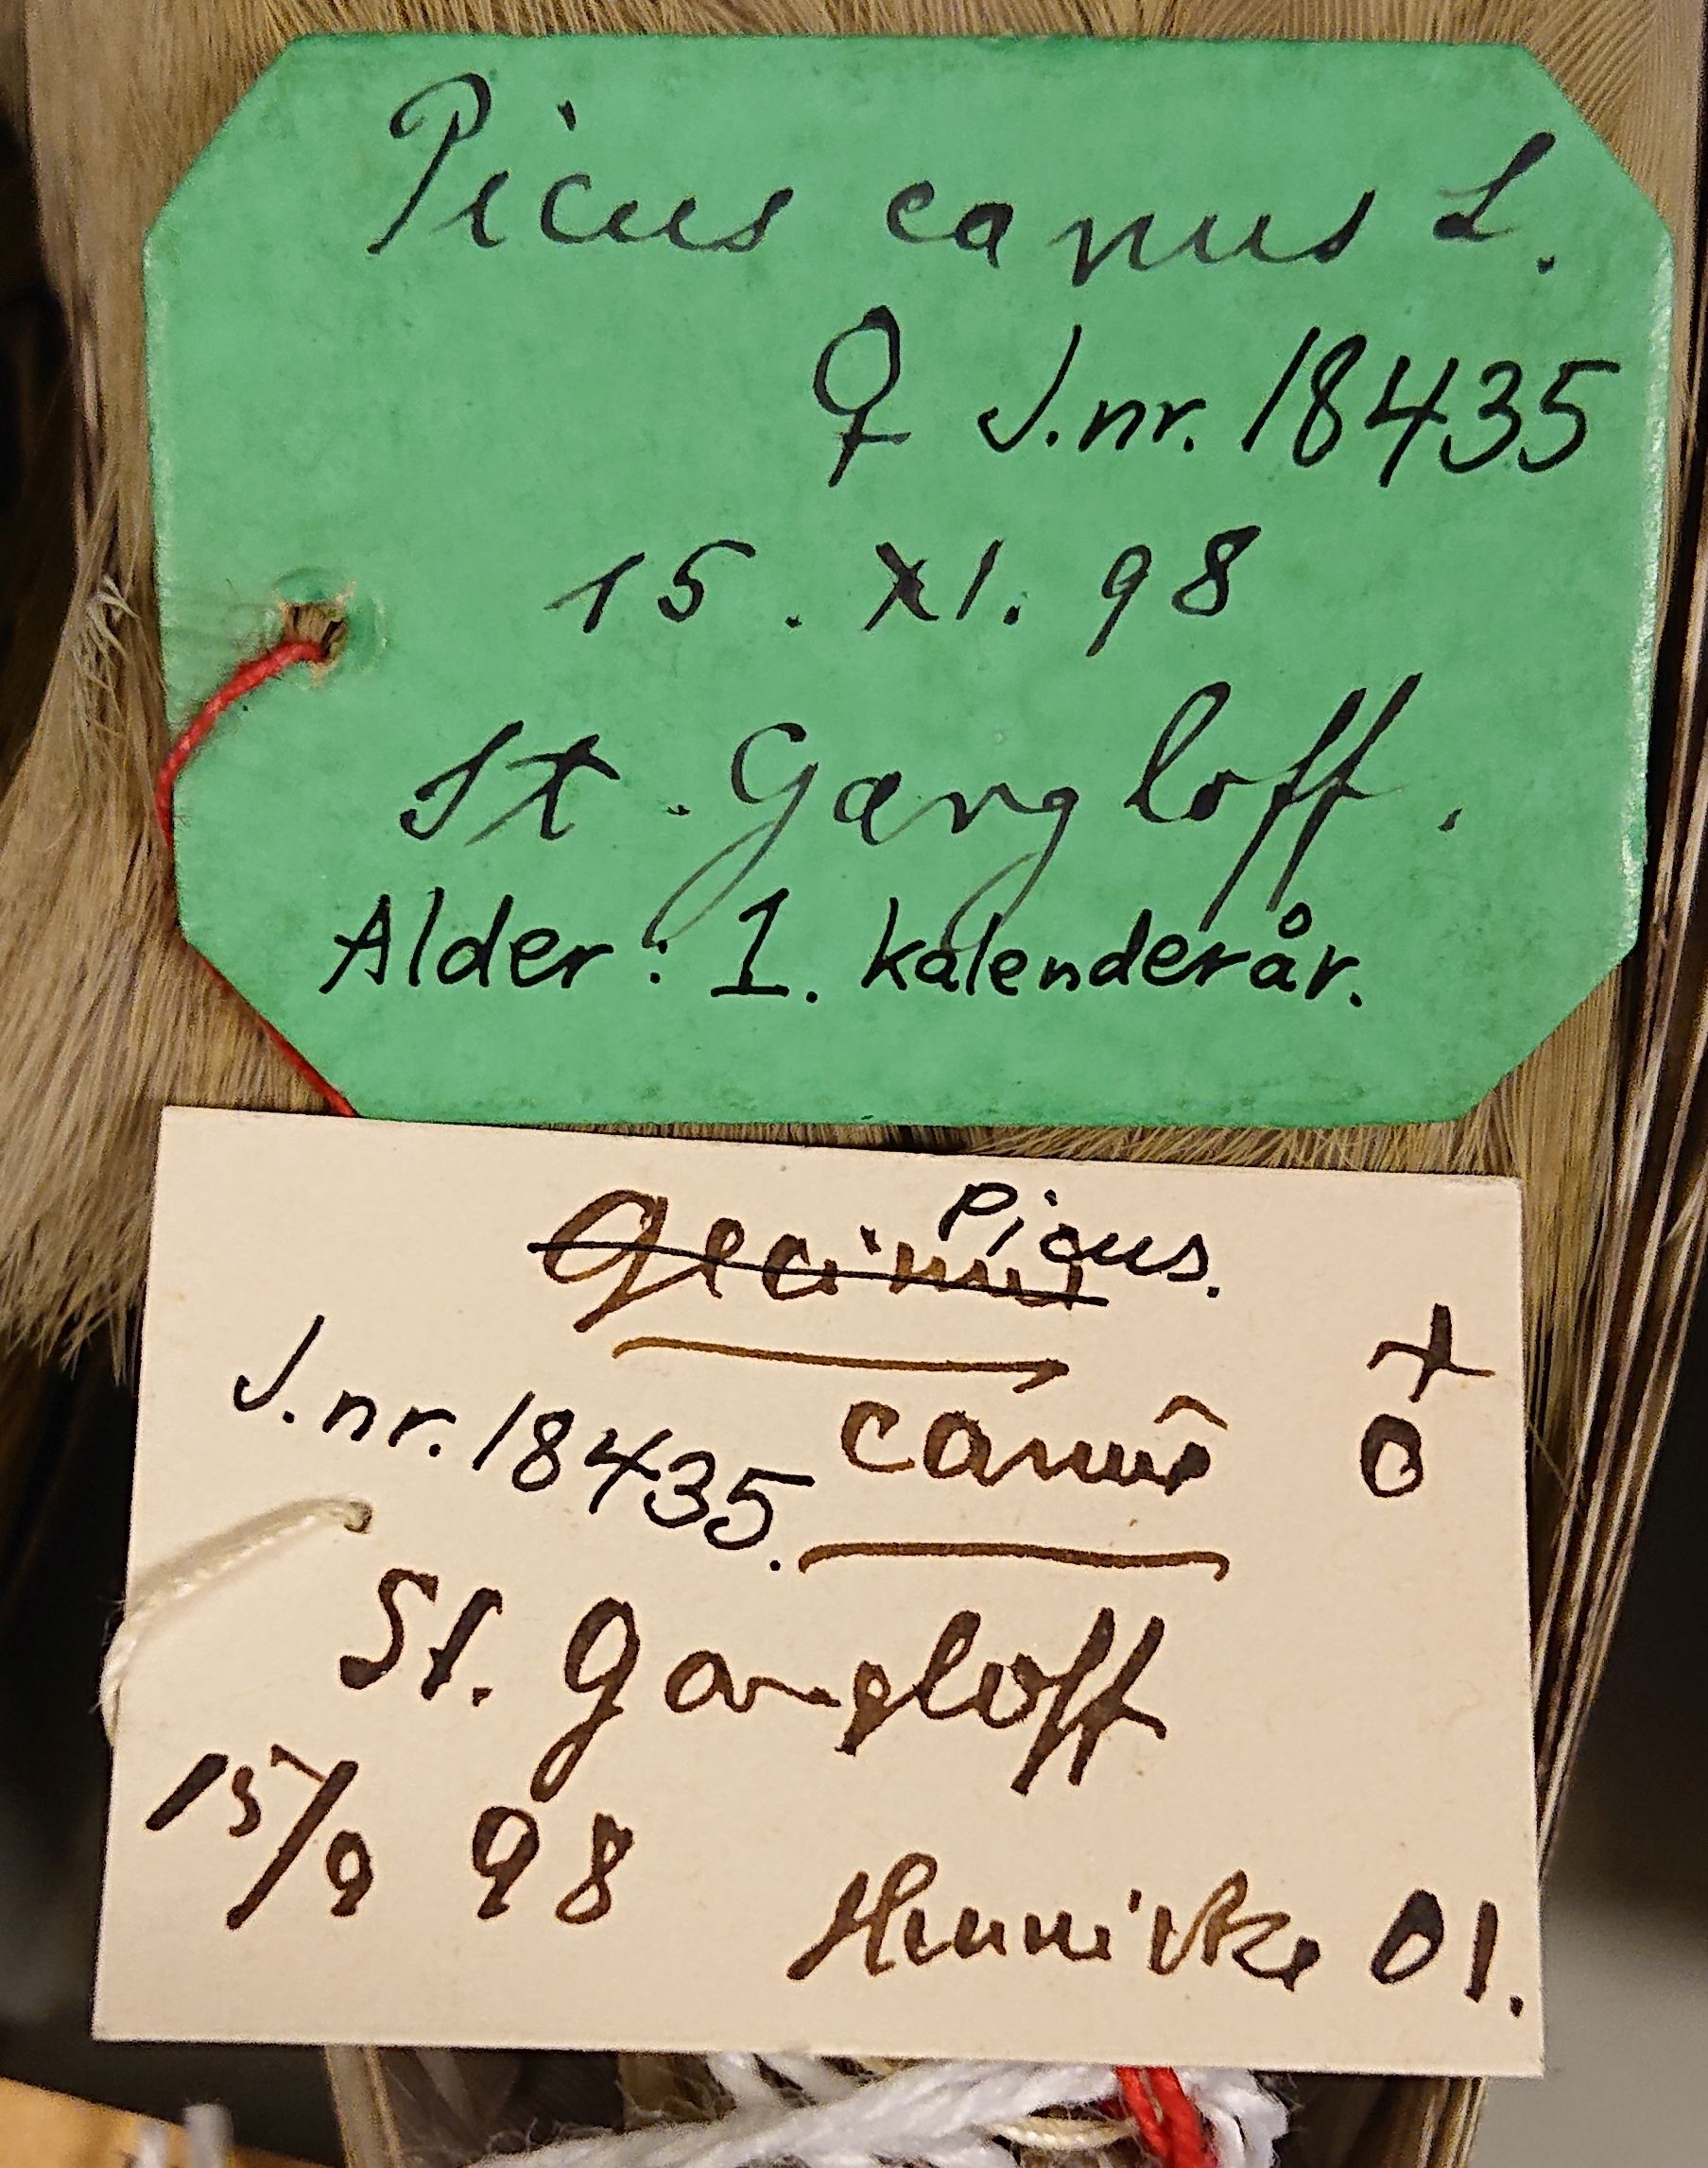 Picus canus L.
♀ J.nr. 18435
15. XI. 98
St. Gangloff.
Alder: 1. kalenderår.
Picus.
Gecinus
J.nr. 18435. canus ♀
St. Gangloff
15/9 98 Hennicke 01.